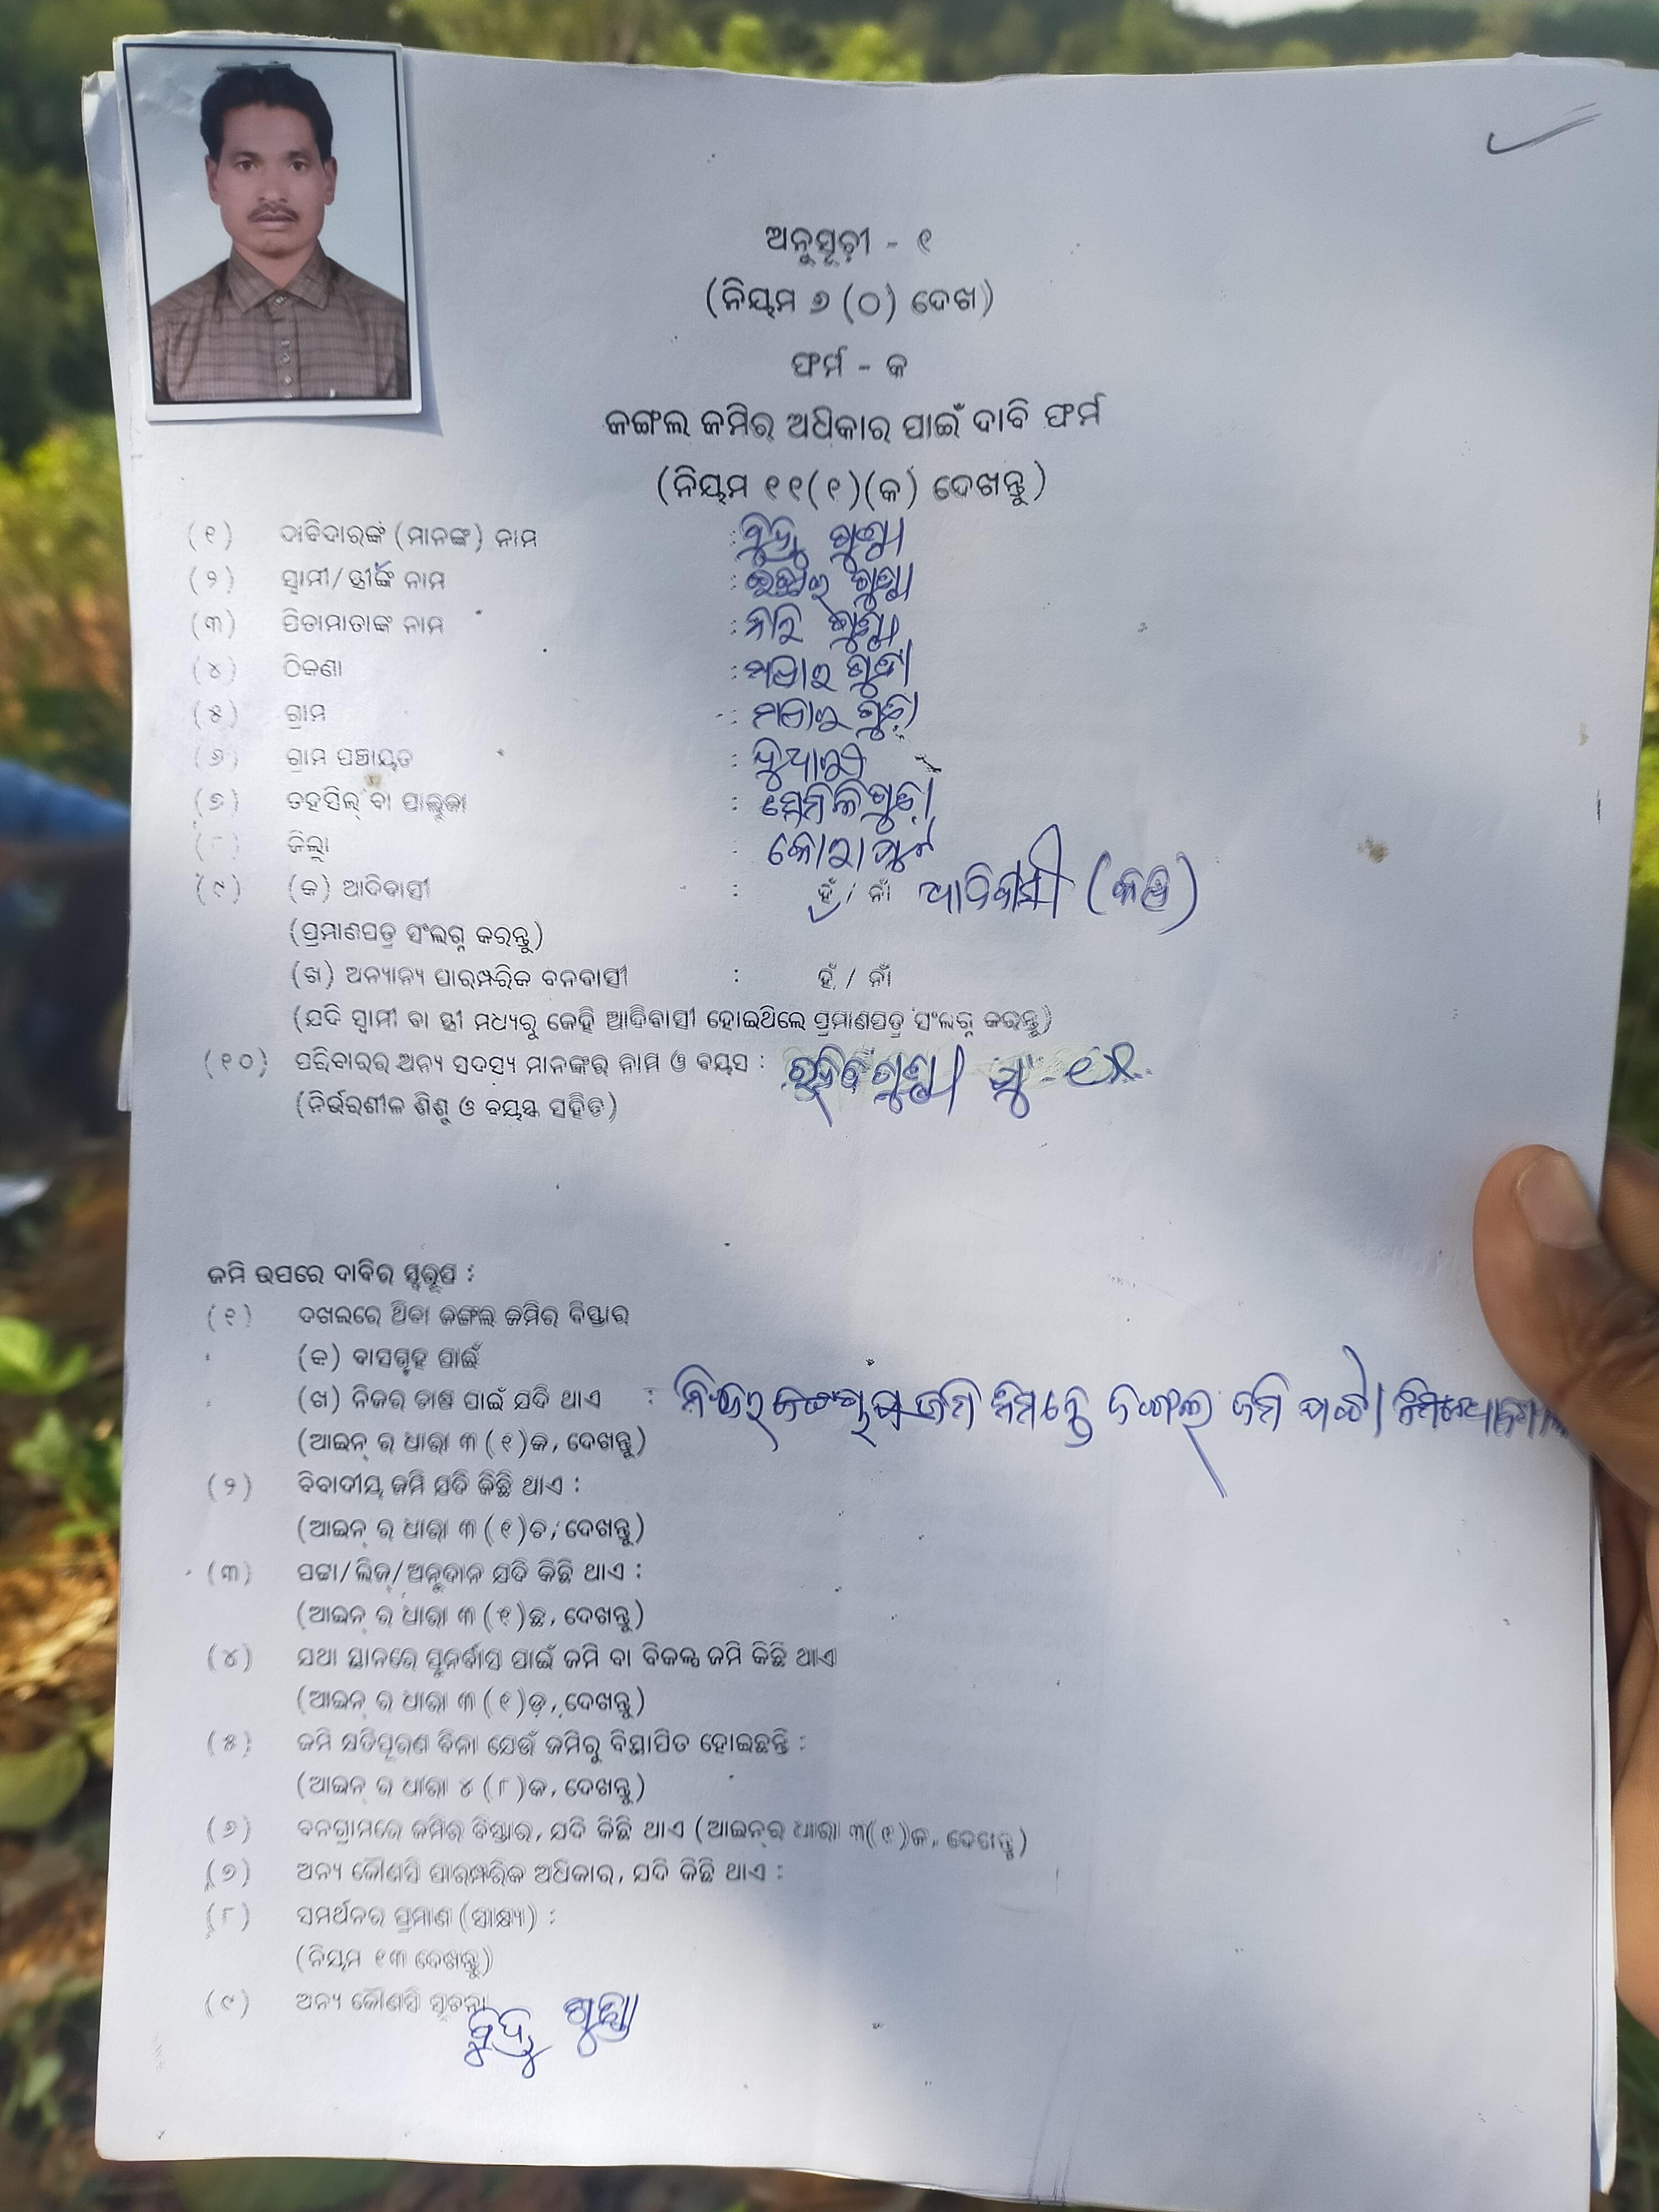 ଅନୁସୂଚୀ - ୧
(ନିୟମ ୬ (୦) ଦେଖ)
ଫର୍ମ - କ
ଜଙ୍ଗଲ ଜମିର ଅଧିକାର ପାଇଁ ଦାବି ଫର୍ମ
(ନିୟମ ୧୧(୧)(କ) ଦେଖନ୍ତୁ)
(୧) ଦାବିଦାରଙ୍କ (ମାନଙ୍କ) ନାମ :
(୨) ସ୍ୱାମୀ/ସ୍ତ୍ରୀଙ୍କ ନାମ :
(୩) ପିତାମାତାଙ୍କ ନାମ :
(୪) ଠିକଣା :
(୫) ଗ୍ରାମ :
(୬) ଗ୍ରାମ ପଞ୍ଚାୟତ :
(୭) ତହସିଲ୍ ବା ତାଲୁକା :
(୮) ଜିଲ୍ଲା : କୋରାପୁଟ
(୯) (କ) ଆଦିବାସୀ : ହଁ / ନାଁ ଆଦିବାସୀ
(ପ୍ରମାଣପତ୍ର ସଂଲଗ୍ନ କରନ୍ତୁ)
(ଖ) ଅନ୍ୟାନ୍ୟ ପାରମ୍ପରିକ ବନବାସୀ : ହଁ / ନାଁ
(ଯଦି ସ୍ୱାମୀ ବା ସ୍ତ୍ରୀ ମଧ୍ୟରୁ କେହି ଆଦିବାସୀ ହୋଇଥିଲେ ପ୍ରମାଣପତ୍ର ସଂଲଗ୍ନ କରନ୍ତୁ)
(୧୦) ପରିବାରର ଅନ୍ୟ ସଦସ୍ୟ ମାନଙ୍କର ନାମ ଓ ବୟସ :
(ନିର୍ଭରଶୀଳ ଶିଶୁ ଓ ବୟସ୍କ ସହିତ)
ଜମି ଉପରେ ଦାବିର ସ୍ୱରୂପ :
(୧) ଦଖଲରେ ଥିବା ଜଙ୍ଗଲ ଜମିର ବିସ୍ତାର
(କ) ବାସଗୃହ ପାଇଁ
(ଖ) ନିଜର ଚାଷ ପାଇଁ ଯଦି ଥାଏ : ଜମି ନିମନ୍ତେ ଜଙ୍ଗଲ ଜମି
(ଆଇନ୍ ର ଧାରା ୩ (୧)କ, ଦେଖନ୍ତୁ)
(୨) ବିବାଦୀୟ ଜମି ଯଦି କିଛି ଥାଏ :
(ଆଇନ୍ ର ଧାରା ୩ (୧)ଚ, ଦେଖନ୍ତୁ)
(୩) ପଟ୍ଟା/ଲିଜ୍/ଅନୁଦାନ ଯଦି କିଛି ଥାଏ :
(ଆଇନ୍ ର ଧାରା ୩ (୧)ଛ, ଦେଖନ୍ତୁ)
(୪) ଯଥା ସ୍ଥାନରେ ପୁନର୍ବାସ ପାଇଁ ଜମି ବା ବିକଳ୍ପ ଜମି କିଛି ଥାଏ
(ଆଇନ୍ ର ଧାରା ୩ (୧)ଡ଼, ଦେଖନ୍ତୁ)
(୫) ଜମି କ୍ଷତିପୂରଣ ବିନା ଯେଉଁ ଜମିରୁ ବିସ୍ଥାପିତ ହୋଇଛନ୍ତି :
(ଆଇନ୍ ର ଧାରା ୪ (୮)କ, ଦେଖନ୍ତୁ)
(୬) ବନଗ୍ରାମରେ ଜମିର ବିସ୍ତାର, ଯଦି କିଛି ଥାଏ (ଆଇନ୍‌ର ଧାରା ୩(୧)କ, ଦେଖନ୍ତୁ)
(୭) ଅନ୍ୟ କୌଣସି ପାରମ୍ପରିକ ଅଧିକାର, ଯଦି କିଛି ଥାଏ :
(୮) ସମର୍ଥନର ପ୍ରମାଣ (ସାକ୍ଷ୍ୟ) :
(ନିୟମ ୧୩ ଦେଖନ୍ତୁ)
(୯) ଅନ୍ୟ କୌଣସି ସୂଚନା